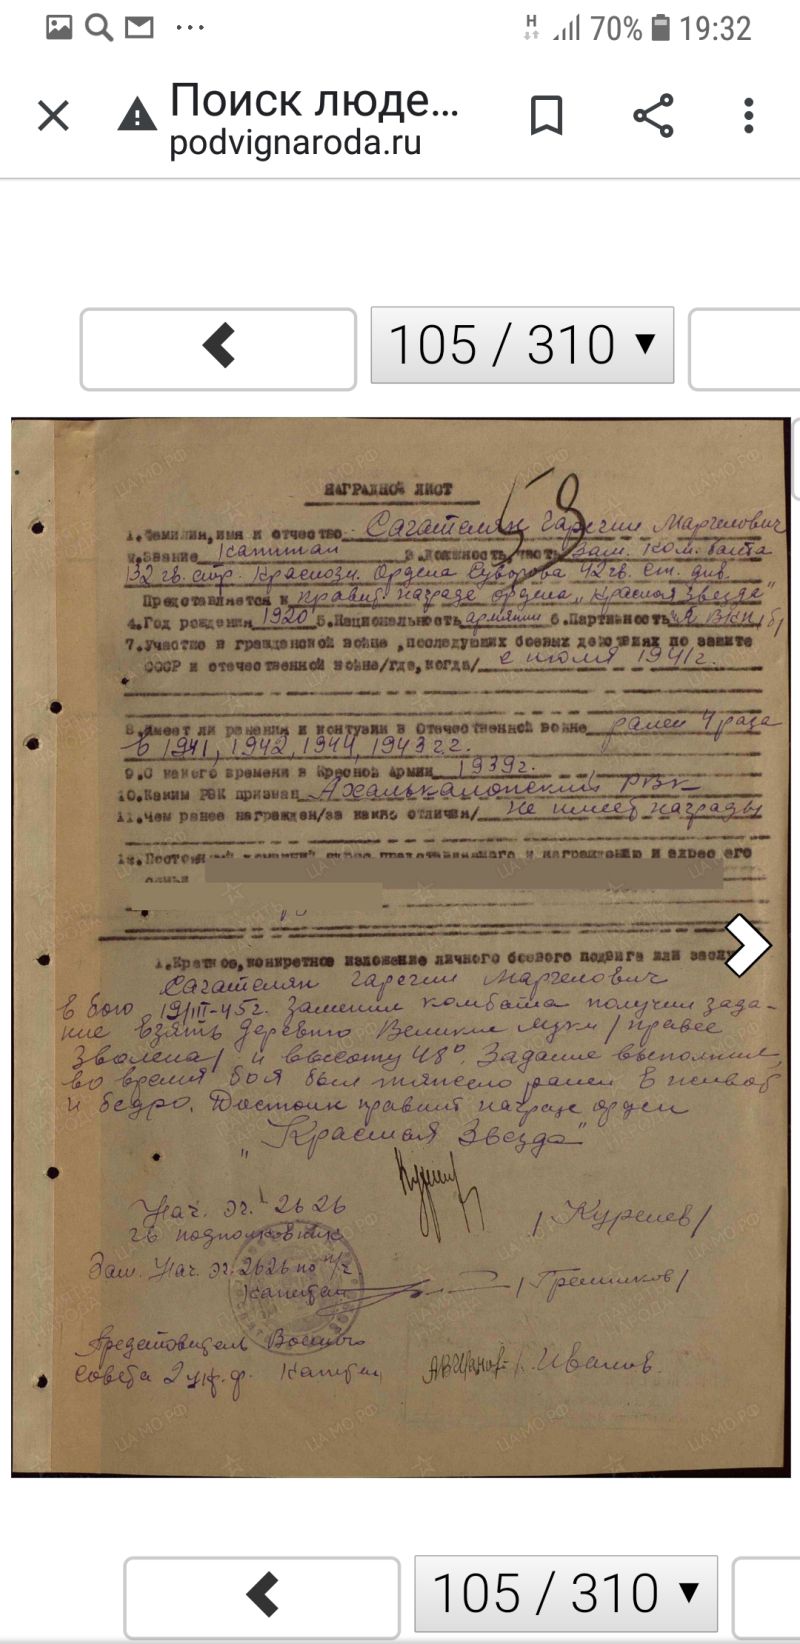 70% 19:32
Поиск люде...
podvignaroda.ru
105 / 310 ▼
НАГРАДНОЙ ЛИСТ
53
1.Фамилия,имя и отчество Сагателян Гарегин Маргелович
2.Звание Капитан 3.Должность,часть Зам. Ком. бата
132 гв. стр. Краснозн. Ордена Суворова 42 гв. ст. див.
Представляется к правит награде ордена "Красная Звезда"
4.Год рождения 1920 5.Национальность армянин 6.Партийность чл ВКП/б/
7.Участие в гражданской войне,последующих боевых действиях по защите
СССР и отечественной войне/где,когда/ с июля 1941г.
8.Имеет ли ранения и контузии в Отечественной войне ранен 4 раза
в 1941, 1942, 1944, 1943 гг.
9.С какого времени в Красной Армии 1939г.
10.Каким РВК призван Ахалькалакский РВК
11.Чем ранее награжден/за какие отличия/ Не имеет награды
12.Постоянный домашний адрес представляемого к награждению и адрес его
семьи
1.Краткое,конкретное изложение личного боевого подвига или заслуг
Сагателян Гарегин Маргелович
в бою 19/III-45г. Заменил комбата получил зада-
ние взять деревню Великие Луки / правее
Зволена / и высоту 48°. Задание выполнил,
во время боя был тяжело ранен в живот
и бедро. Достоин правит награде орден
"Красная Звезда"
Нач. эг. 2626
гв подполковник / Курелев /
Зам. Нач. эг. 2626 по п/ч
Капитан / Грешников /
Представитель Военного
Совета 2 укр. ф. Капитан АВИванов / Иванов.
105 / 310 ▼